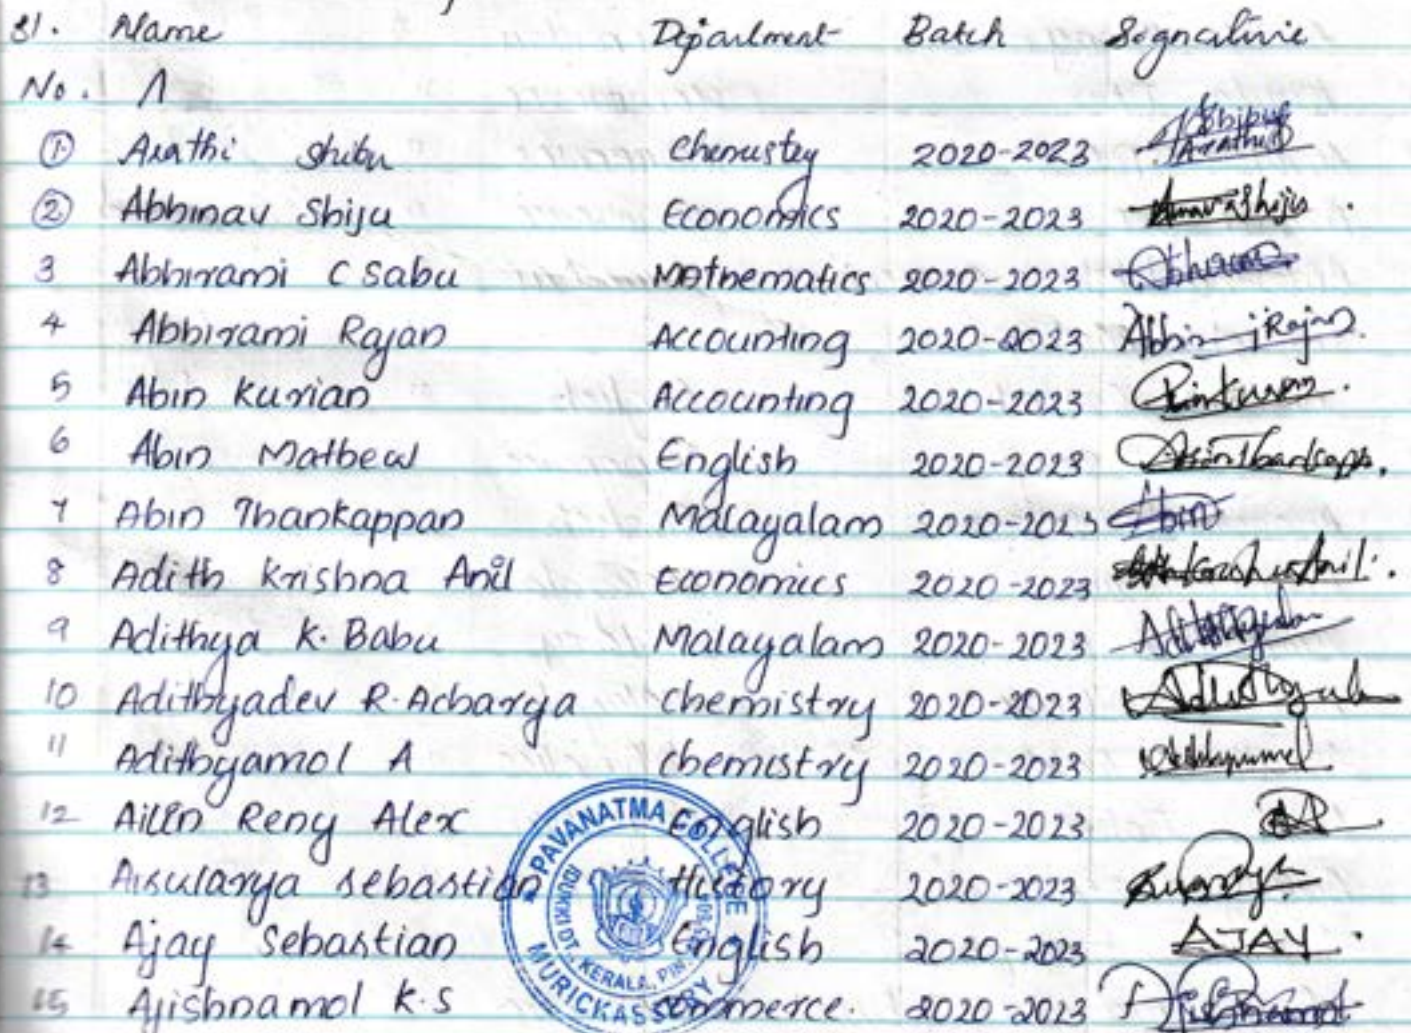 Sl. Name Department Batch Signature
No. A
1 Arathi Shibu Chemistry 2020-2023
2 Abhinav Shiju Economics 2020-2023
3 Abhirami C Sabu Mathematics 2020-2023
4 Abhirami Rajan Accounting 2020-2023
5 Abin Kurian Accounting 2020-2023
6 Abin Mathew English 2020-2023
7 Abin Thankappan Malayalam 2020-2023 Abin
8 Adith Krishna Anil Economics 2020-2023
9 Adithya K. Babu Malayalam 2020-2023
10 Adithyadev R. Acharya Chemistry 2020-2023
11 Adithyamol A Chemistry 2020-2023
12 Ailin Reny Alex English 2020-2023
13 Aiswarya Sebastian History 2020-2023
14 Ajay Sebastian English 2020-2023 AJAY.
15 Ajishnamol K.S Commerce. 2020-2023
PAVANATMA COLLEGE
IDUKKI DT. KERALA, PIN
MURICKASSERY